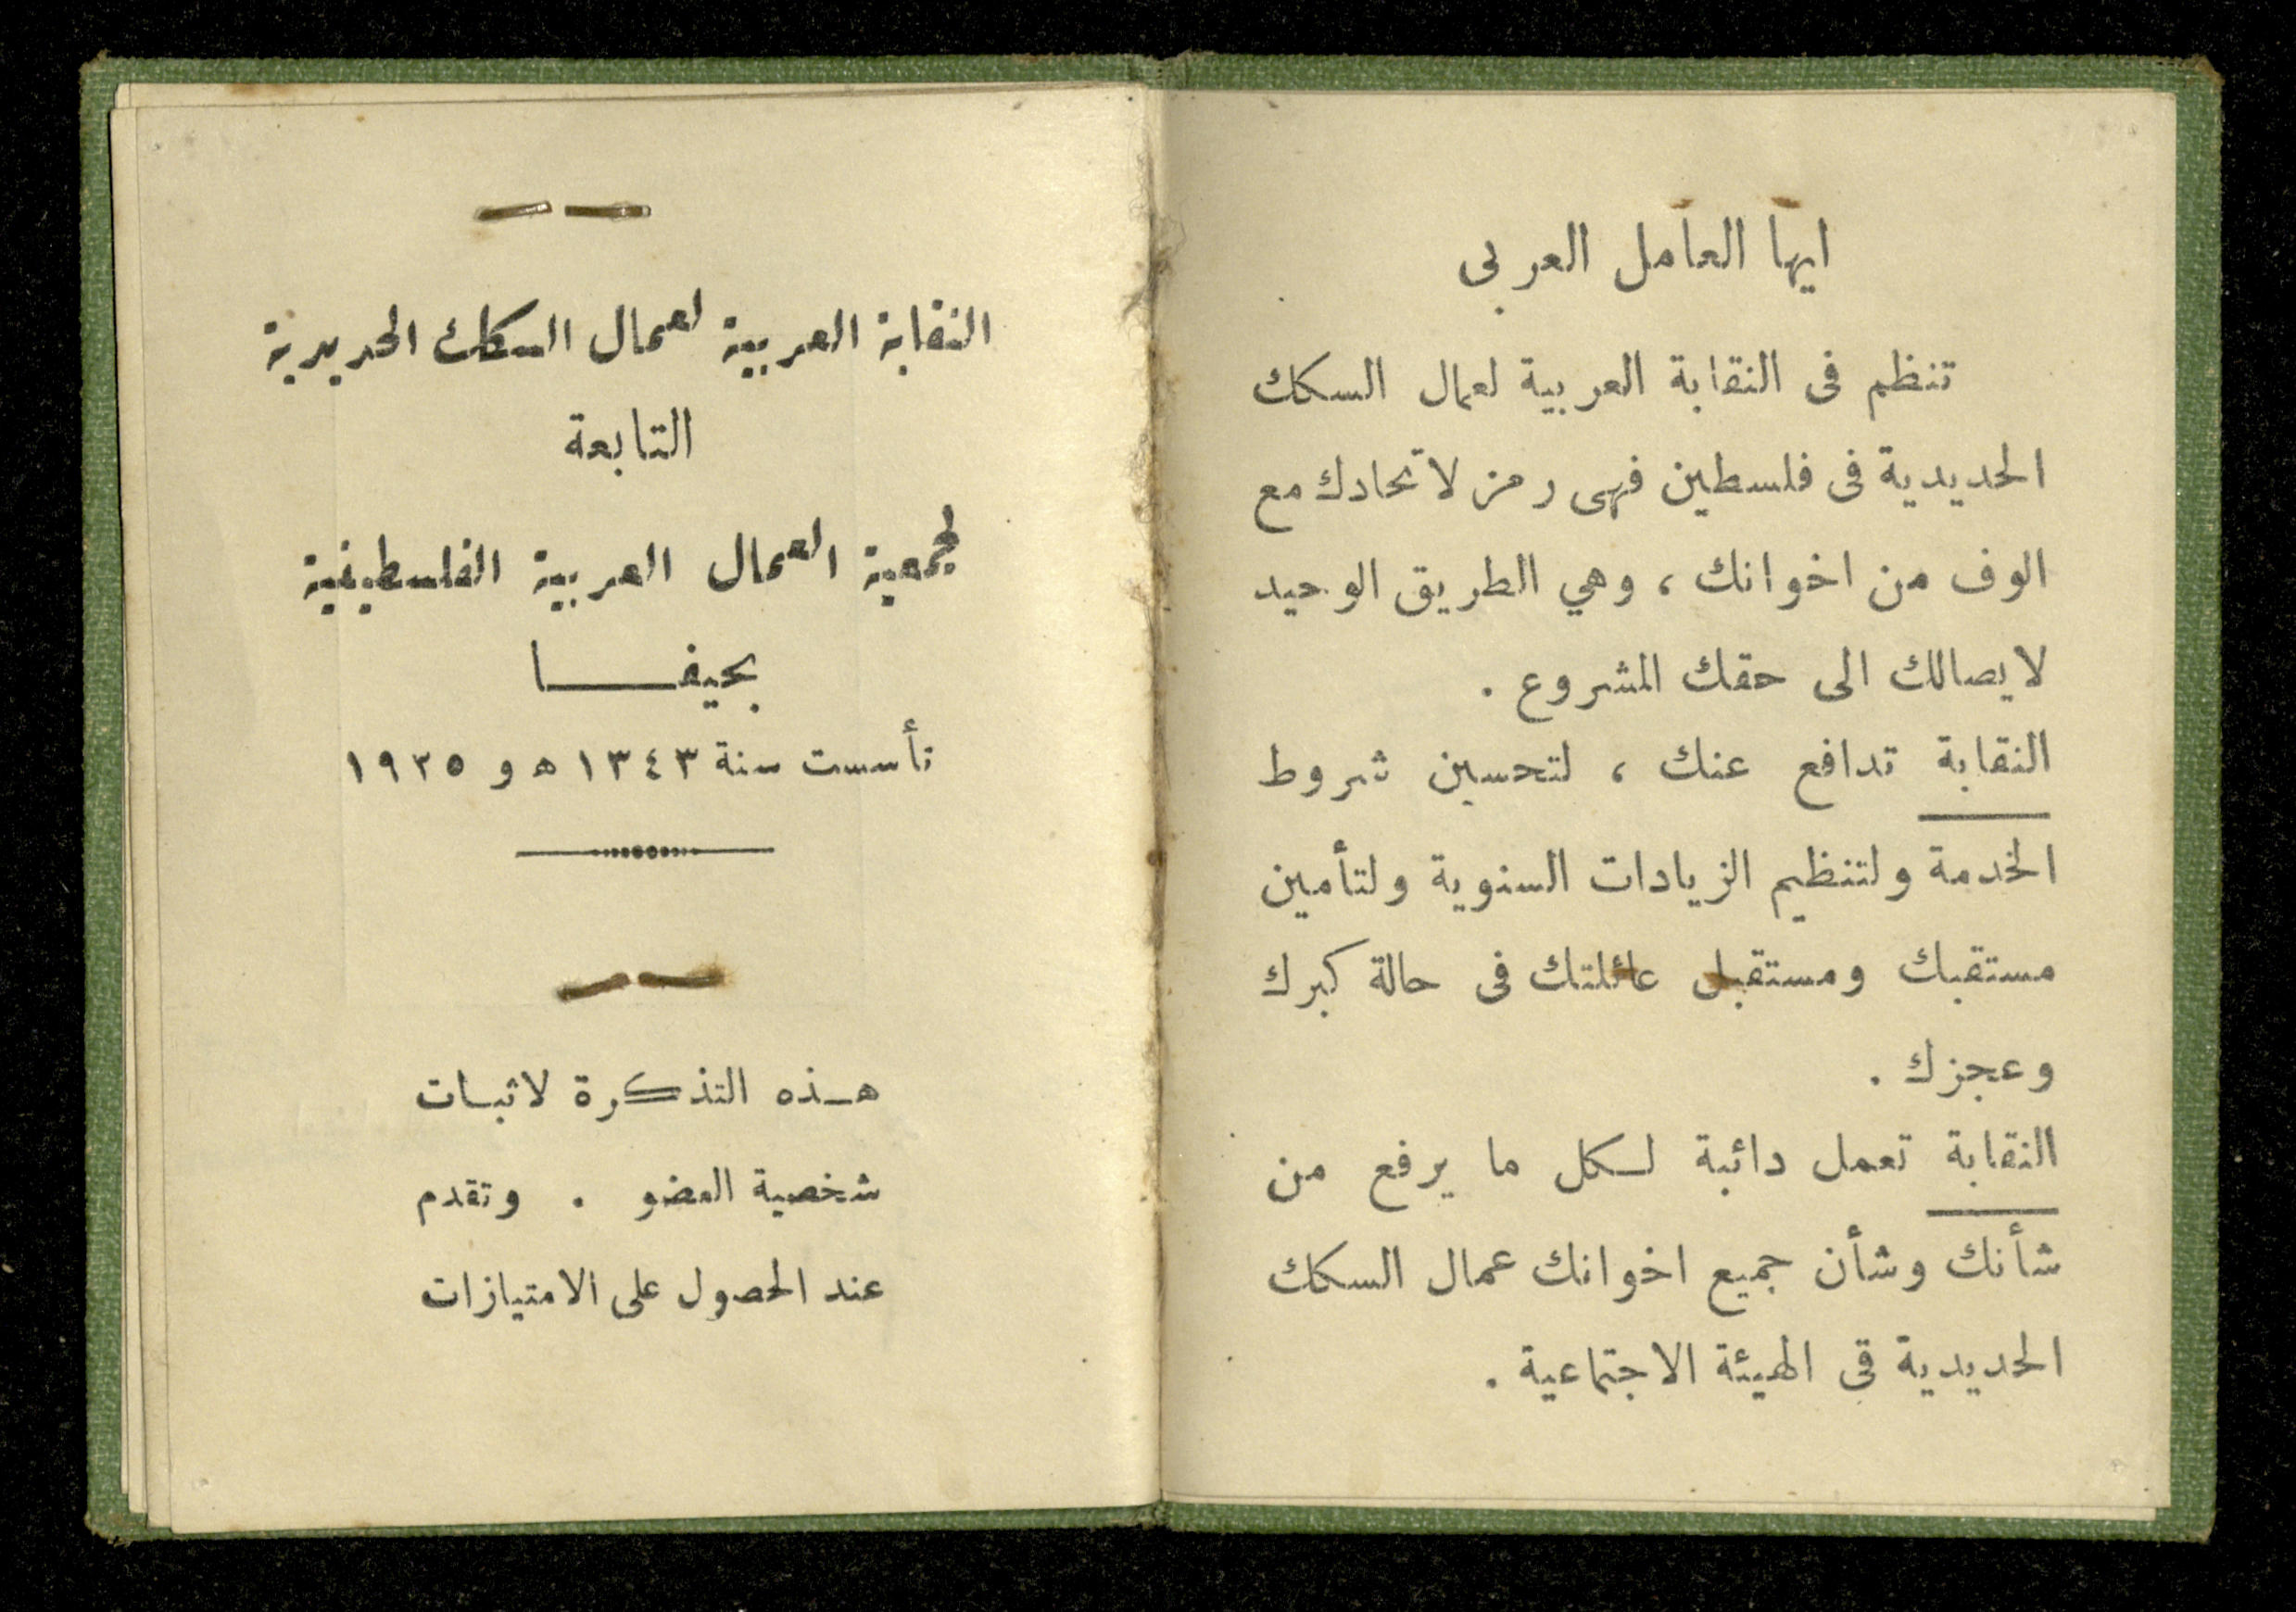 ايها العامل العربى
تنظم فى النقابة العربية لعمال السكك
الحديدية فى فلسطين فهى رمز لاتحادك مع
الوف من اخوانك ، وهي الطريق الوحيد
لايصالك الى حقك المشروع .
النقابة تدافع عنك ، لتحسين شروط
الخدمة ولتنظيم الزيادات السنوية ولتأمين
مستقبك ومستقبل عائلتك فى حالة كبرك
وعجزك .
النقابة تعمل دائبة لكل ما يرفع من
شأنك وشأن جميع اخوانك عمال السكك
الحديدية قى الهيئة الاجتماعية .
النقابة العربية لعمال السكك الحديدية
التابعة
لجمعية العمال العربية الفلسطينية
بحيفــــا
تأسست سنة ١٣٤٣ ه و ١٩٢٥
هـذه التذكرة لاثبـات
شخصية العضو . وتقدم
عند الحصول على الامتيازات